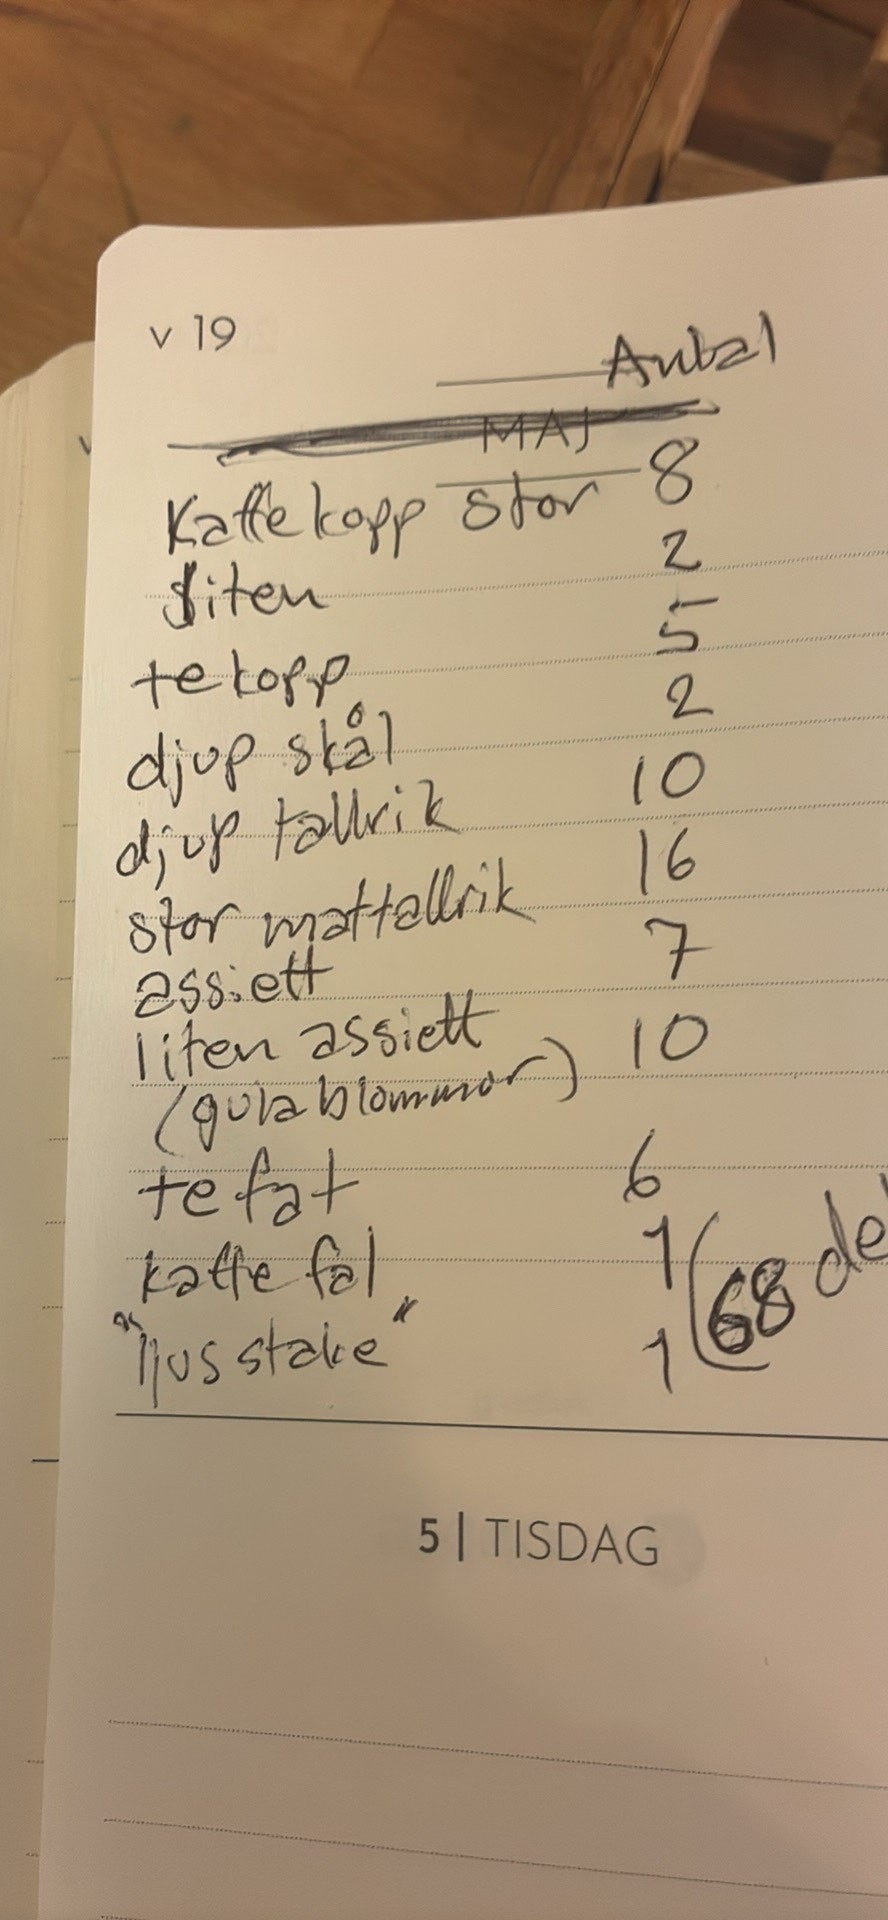 v 19
Antal
MAJ
Kaffekopp stor 8
liten 2
tekopp 5
djup skål 2
djup tallrik 10
stor mattallrik 16
assiett 7
liten assiett 10
(gula blommor)
tefat 6
kaffefat 1
"ljusstake" 1
(68 del
5 | TISDAG